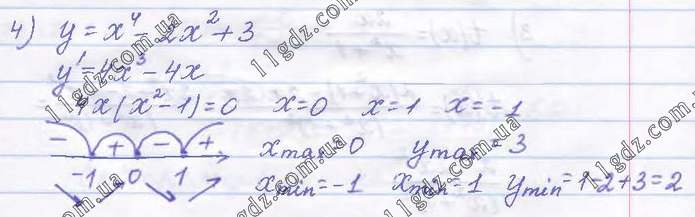 4) y = x⁴ - 2x² + 3
y' = 4x³ - 4x
4x(x² - 1) = 0 x = 0 x = 1 x = -1
- + - +
-1 0 1
x max = 0 y max = 3
x min = -1 x min = 1 y min = 1 - 2 + 3 = 2
11gdz.com.ua
11gdz.com.ua
11gdz.com.ua
11gdz.com.ua
11gdz.com.ua
11gdz.com.ua